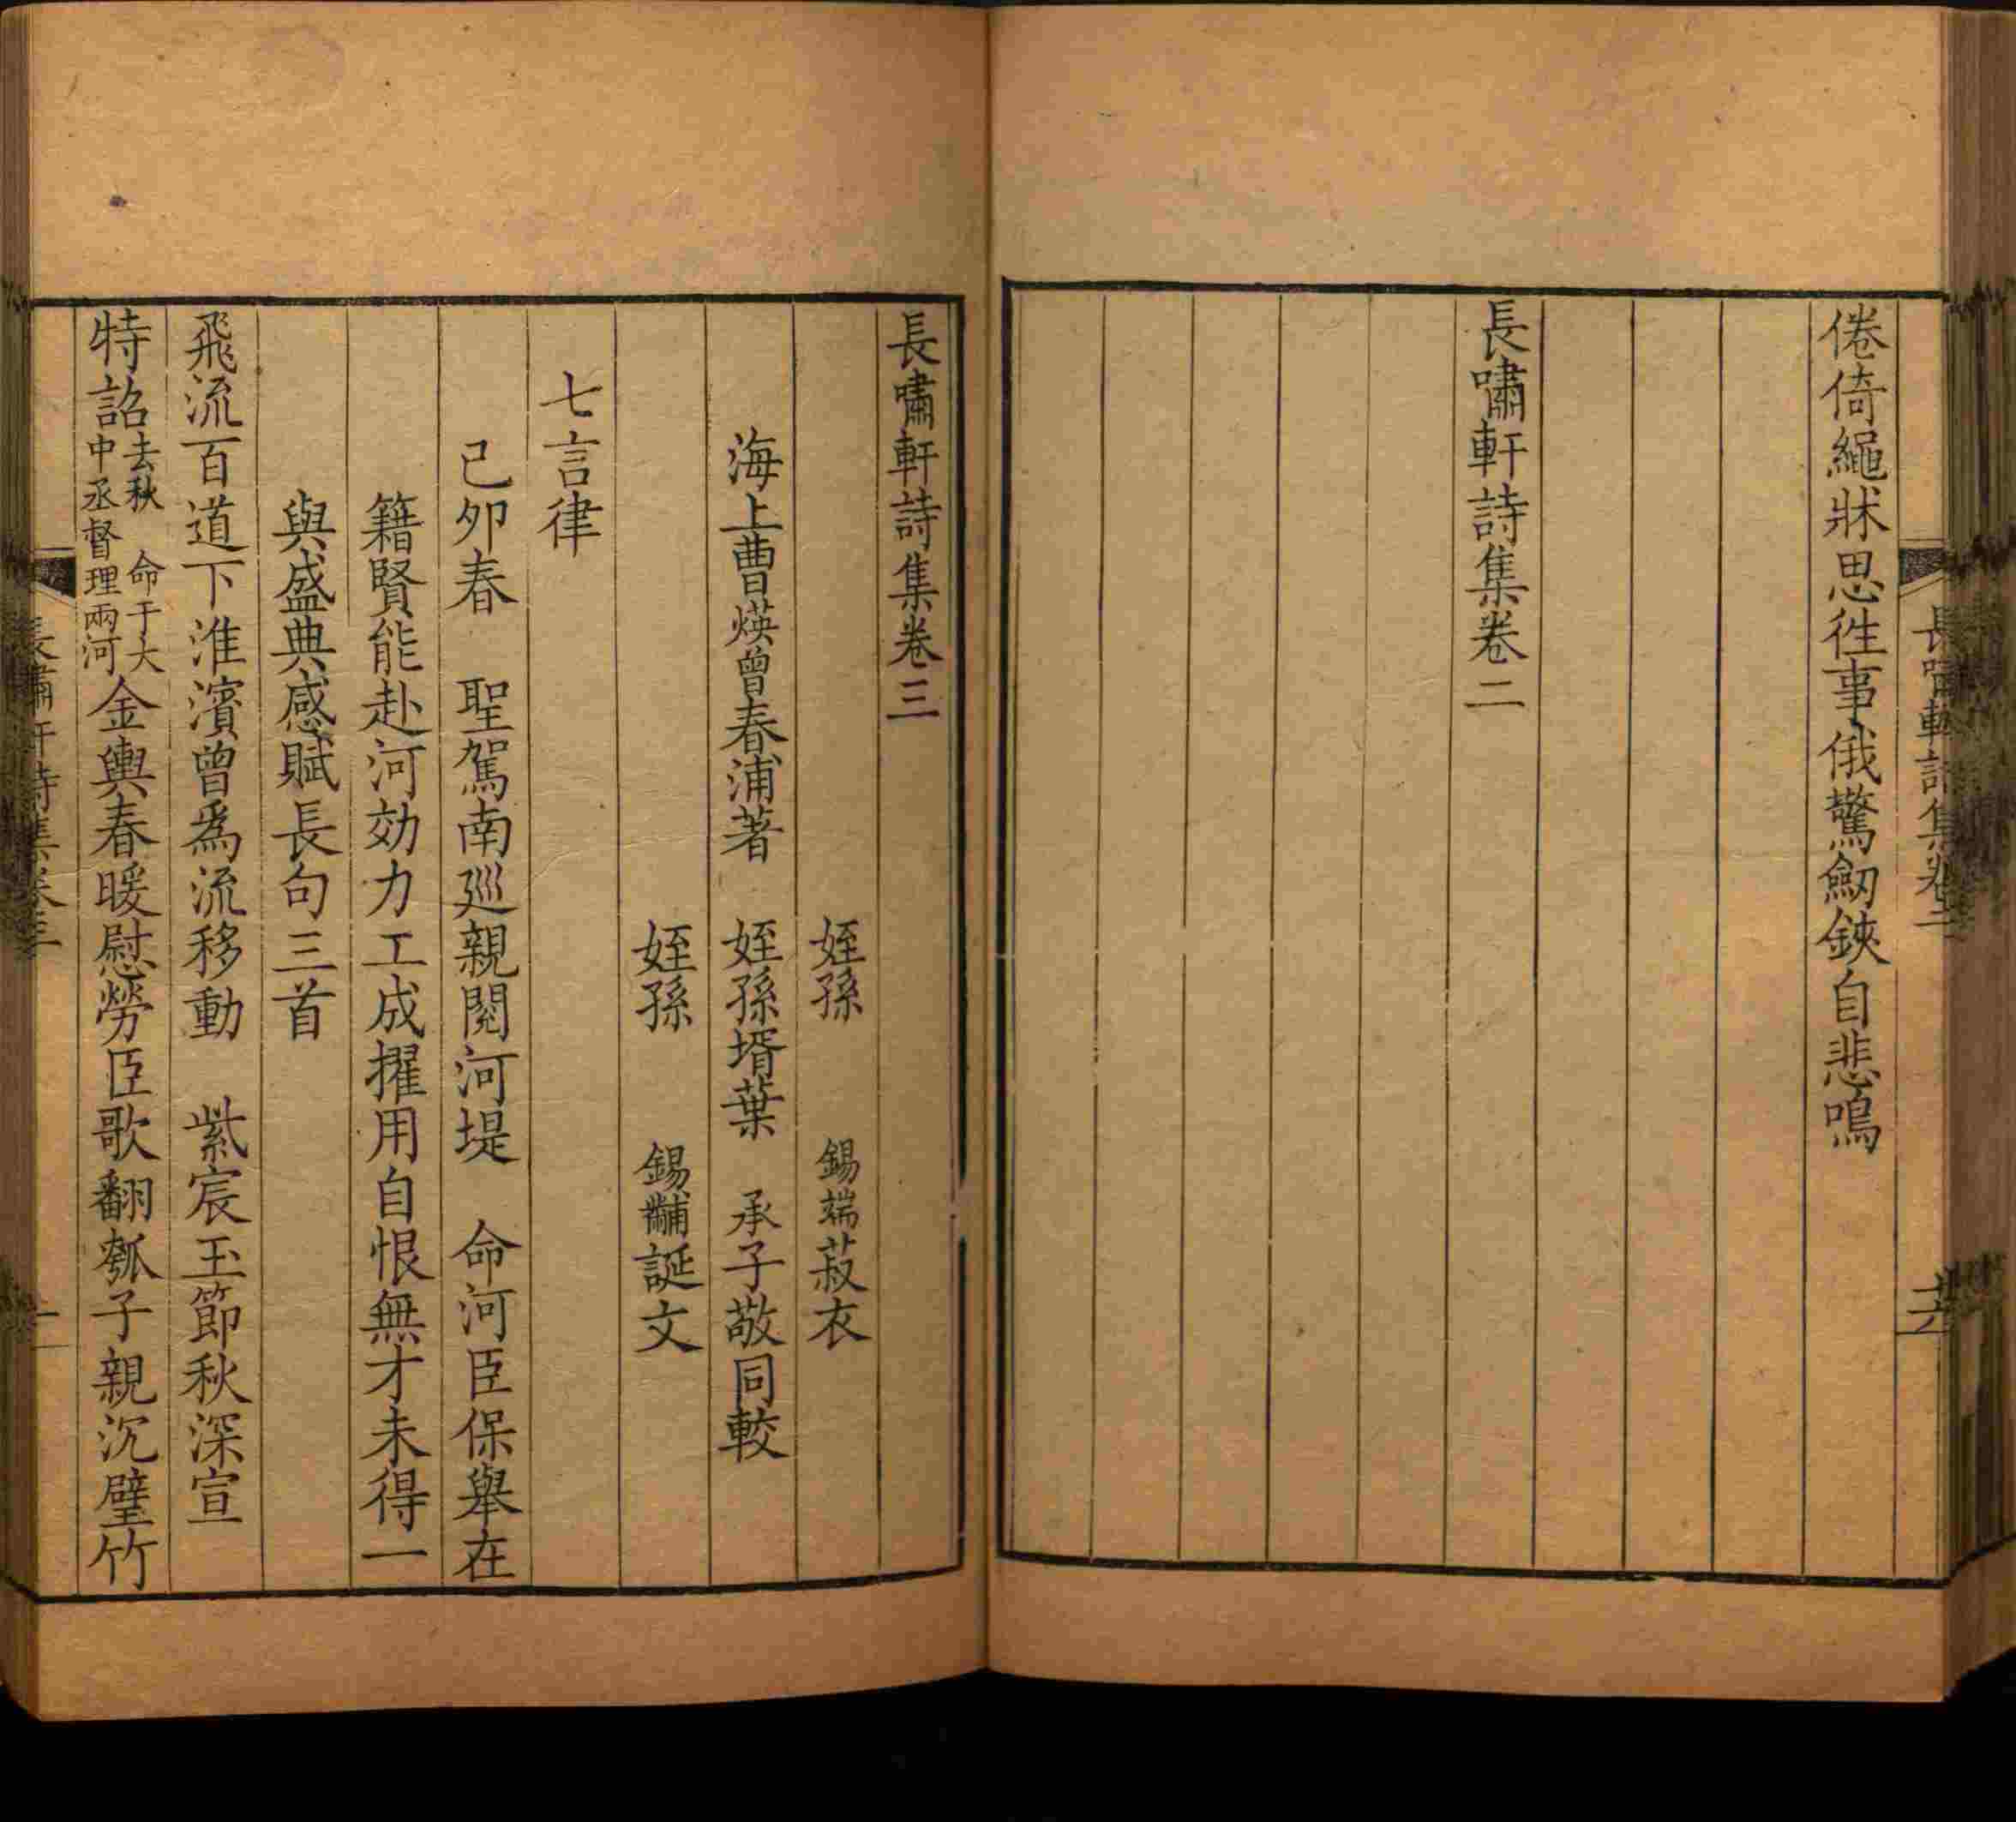 長嘯軒詩集卷二
倦倚繩牀思徃事俄驚劒鋏自悲鳴
長嘯軒詩集卷二
長嘯軒詩集卷三
姪孫 錫端菽衣
海上曹煐曾春浦著 姪孫壻葉 承子敬同較
姪孫 錫黼誕文
七言律
己夘春 聖駕南廵親閱河堤 命河臣保舉在
籍賢能赴河効力工成擢用自恨無才未得一
與盛典感賦長句三首
飛流百道下淮濱曾爲流移動 紫宸玉節秋深宣
特詔去秋 命于大
中丞督理兩河金輿春暖慰勞臣歌翻瓠子親沉璧竹
長嘯軒詩集卷三 一